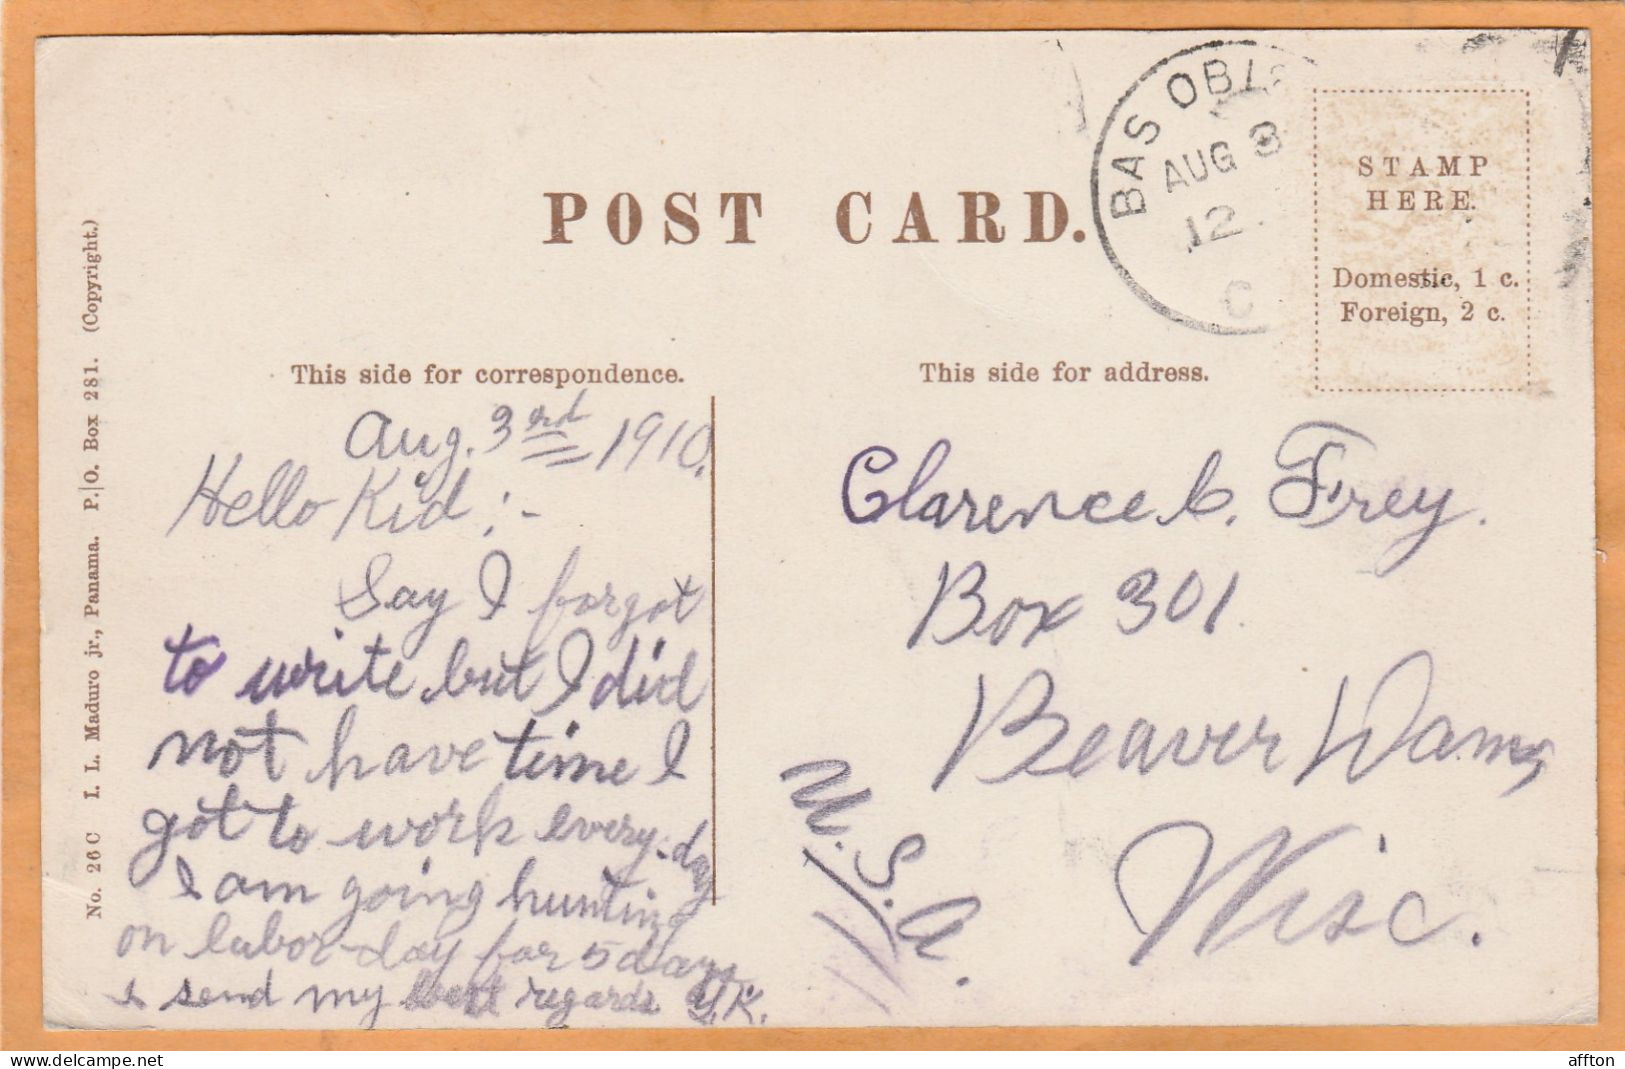 POST CARD.
BAS OBIS
AUG 3
12.
C
STAMP
HERE.
Domestic, 1 c.
Foreign, 2 c.
This side for correspondence.
This side for address.
No. 26 C   I. L. Maduro jr., Panama.   P. O. Box 281.   (Copyright.)
Aug. 3rd 1910.
Hello Kid :-
Say I forgot
to write but I did
not have time I
got to work every-day
I am going hunting
on labor-day for 5 days
I send my best regards Y.K.
Clarence C. Frey.
Box 301.
Beaver Dam,
Wisc.
U.S.A.
www.delcampe.net
affton